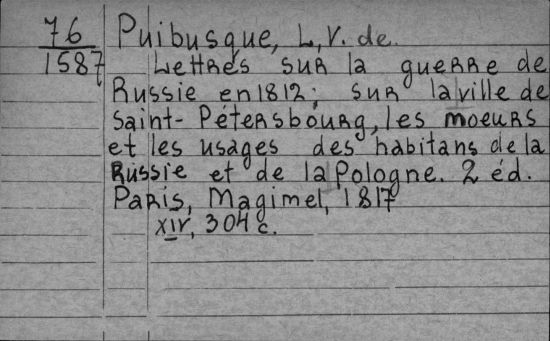 76
1587
Puibusque, L.V. de.
Lettres sur la guerre de
Russie en 1812; sur la ville de
Saint-Pétersbourg, les moeurs
et les usages des habitans de la
Russie et de la Pologne. 2 éd.
Paris, Magimel, 1817
XIV, 304 c.